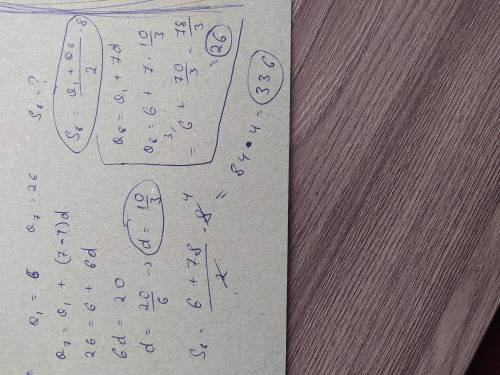 a₁ = 6   a₇ = 26   S₈ = ?
a₇ = a₁ + (7-1)d
26 = 6 + 6d
6d = 20
d = 20/6 → d = 10/3
S₈ = (a₁ + a₈)/2 · 8
a₈ = a₁ + 7d
a₈ = 6 + 7 · 10/3
= 6 + 70/3 = 78/3
= 26
S₈ = (6 + 78)/2 · 8 4 =
84 · 4 = 336